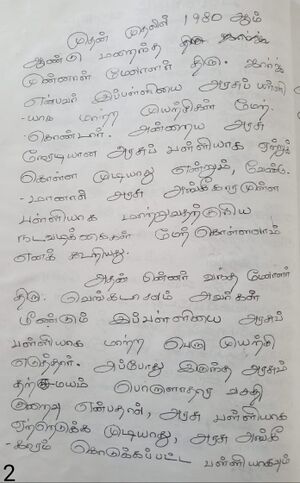 முதன் முதலில் 1980 ஆம்
ஆண்டு மறைந்த திரு ஜார்ஜ்
முன்னாள் மேலாளர் திரு. ஜார்ஜ்
என்பவர் இப்பள்ளியை அரசுப் பள்ளி
-யாக மாற்ற முயற்சிகள் மேற்
-கொண்டார். அன்றைய அரசு
நேரடியான அரசுப் பள்ளியாக ஏற்றுக்
கொள்ள முடியாது என்றும், வேண்டு
-மானால் அரசு அங்கீகாரமுள்ள
பள்ளியாக மாற்றுவதற்குரிய
நடவடிக்கைகள் மேற்கொள்ளலாம்
எனக் கூறியது.
அதன் பின்னர் வந்த மேலாளர்
திரு. வெங்கடாசலம் அவர்கள்
மீண்டும் இப்பள்ளியை அரசுப்
பள்ளியாக மாற்ற பெரு முயற்சி
எடுத்தார். அப்போது இருந்த அரசும்
தற்சமயம் பொருளாதார வசதி
குறைவு என்பதால், அரசு பள்ளியாக
ஏற்றெடுக்க முடியாது, அரசு அங்கீ
-காரம் கொடுக்கப்பட்ட பள்ளியாகவும்
2